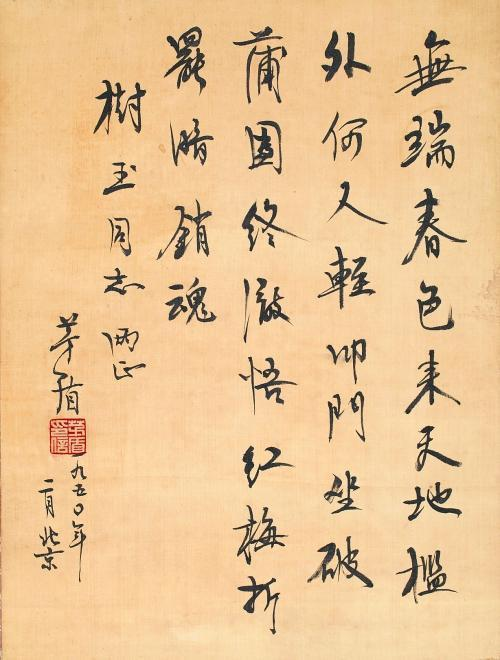 無端春色来天地檻
外何人輕叩門坐破
蒲團終澈悟红梅折
罷暗銷魂
樹玉同志
茅盾
茅盾印信
一九五〇年
二月北京